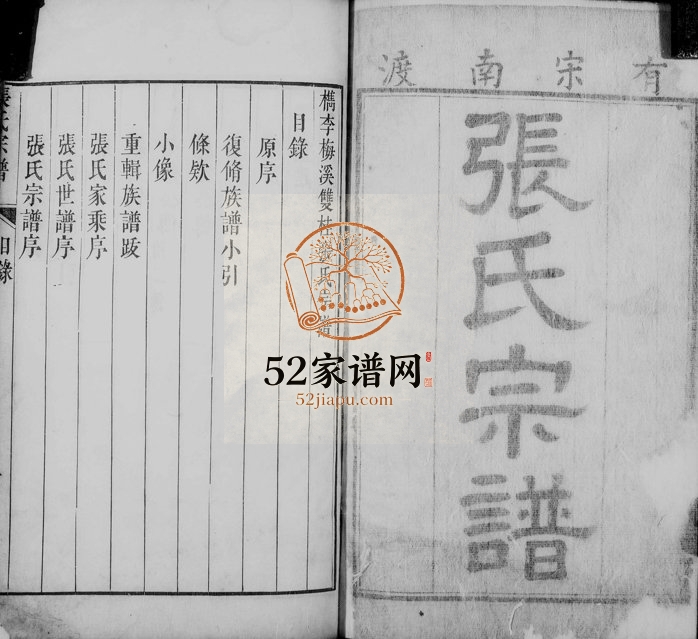 有宋南渡
張氏宗譜
檇李梅溪雙桂張氏宗譜
目錄
原序
復脩族譜小引
條欵
小像
重輯族譜跋
張氏家乘序
張氏世譜序
張氏宗譜序
張氏宗譜
目錄
52家谱网
52jiapu.com